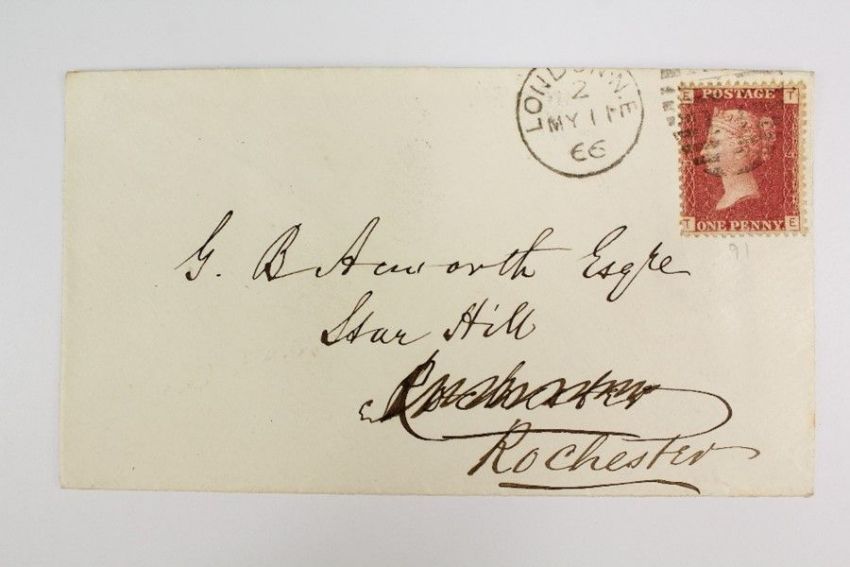 LONDON N.E
2
MY 11
66
POSTAGE
E T
T E
ONE PENNY
91
G. B Acworth Esqre
Star Hill
Rochester